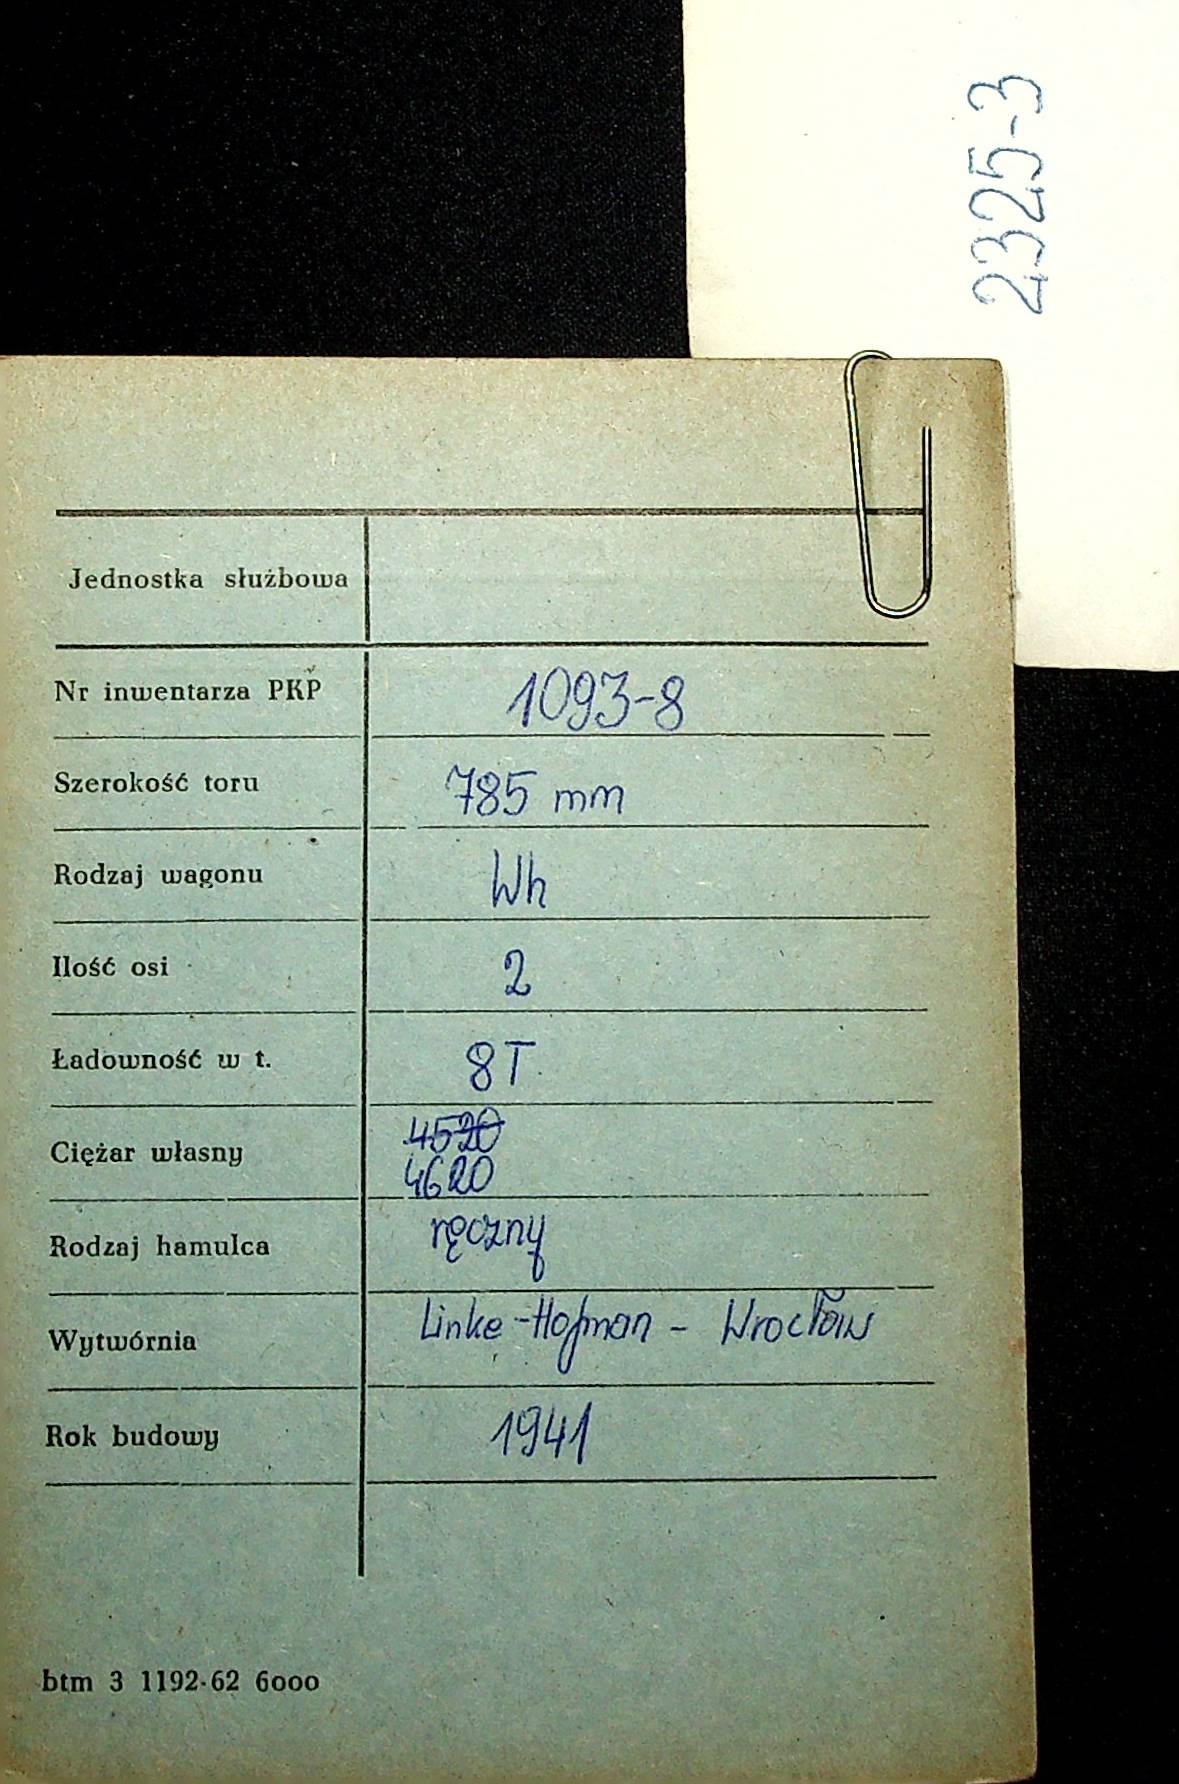 2325-3
Jednostka służbowa
Nr inwentarza PKP 1093-8
Szerokość toru 785 mm
Rodzaj wagonu Wh
Ilość osi 2
Ładowność w t. 8T
Ciężar własny 4520
4620
Rodzaj hamulca ręczny
Wytwórnia Linke-Hofman - Wrocław
Rok budowy 1941
btm 3 1192-62 6000